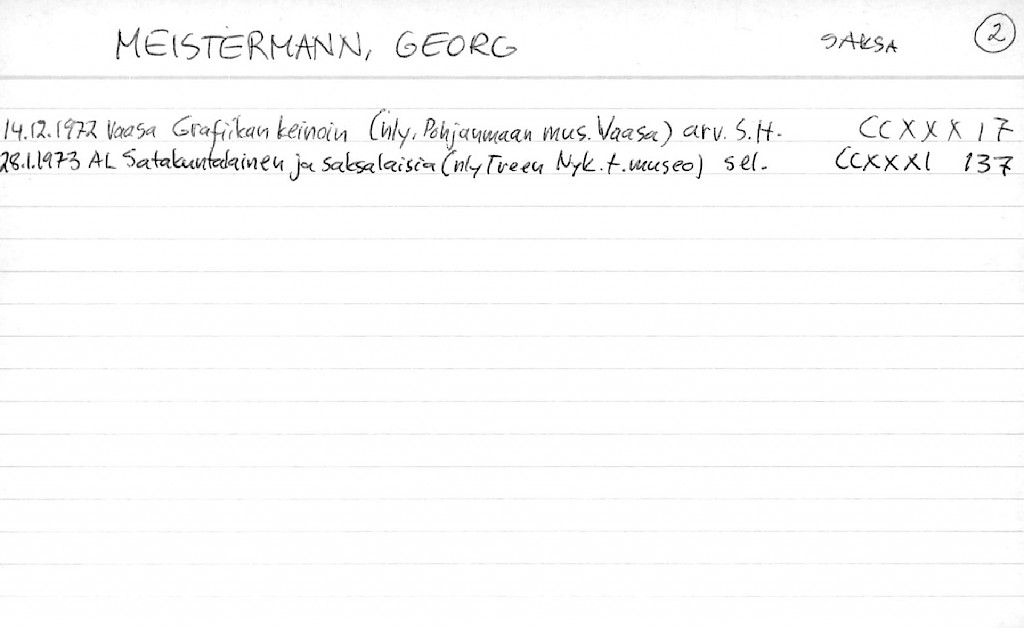 MEISTERMANN, GEORG SAKSA 2
14.12.1972 Vaasa Grafiikan keinoin (nly, Pohjanmaan mus. Vaasa) arv. S.H. CCXXX 17
28.1.1973 AL Satakuntalainen ja saksalaisia (nly Treen Nyk. t. museo) sel. CCXXXI 137